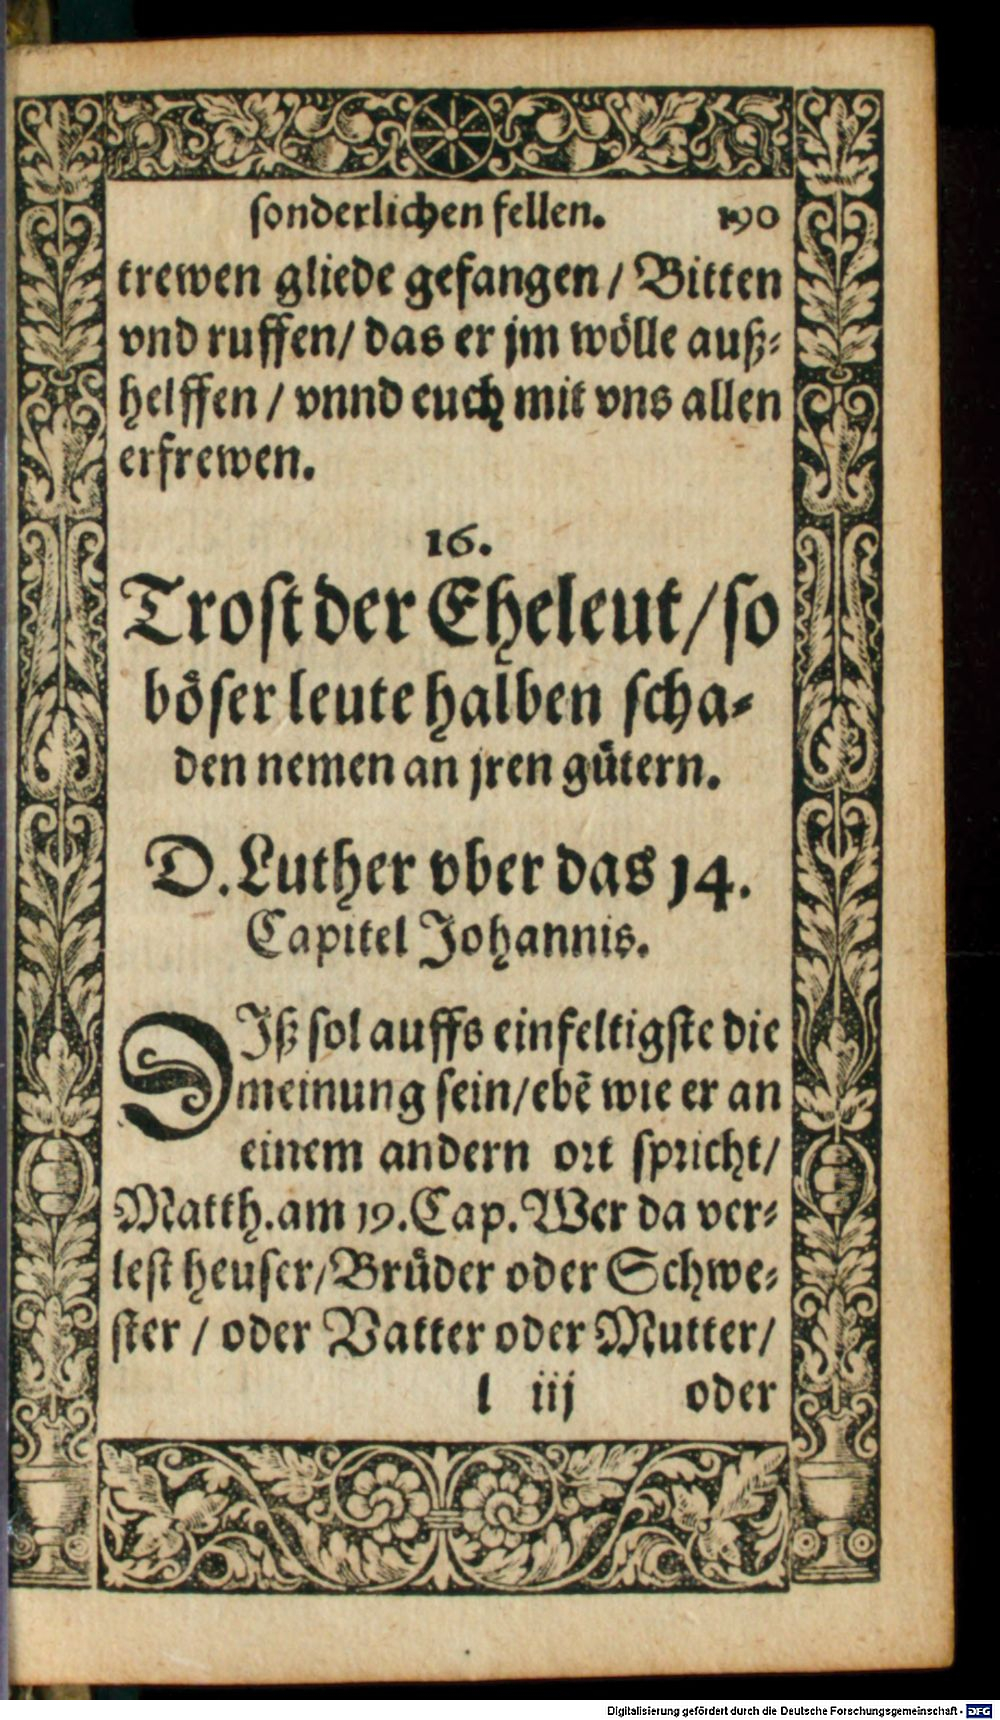 sonderlichen fellen. 190
trewen gliede gefangen / Bitten
vnd ruffen / das er jm wölle auß⸗
helffen / vnnd euch mit vns allen
erfrewen.
16.
Trost der Eheleut / so
böser leute halben scha⸗
den nemen an jren gütern.
D. Luther vber das 14.
Capitel Johannis.
DIß sol auffs einfeltigste die
meinung sein / ebē wie er an
einem andern ort spricht /
Matth. am 19. Cap. Wer da ver⸗
lest heuser / Brüder oder Schwe⸗
ster / oder Vatter oder Mutter /
l iij oder
Digitalisierung gefördert durch die Deutsche Forschungsgemeinschaft - DFG